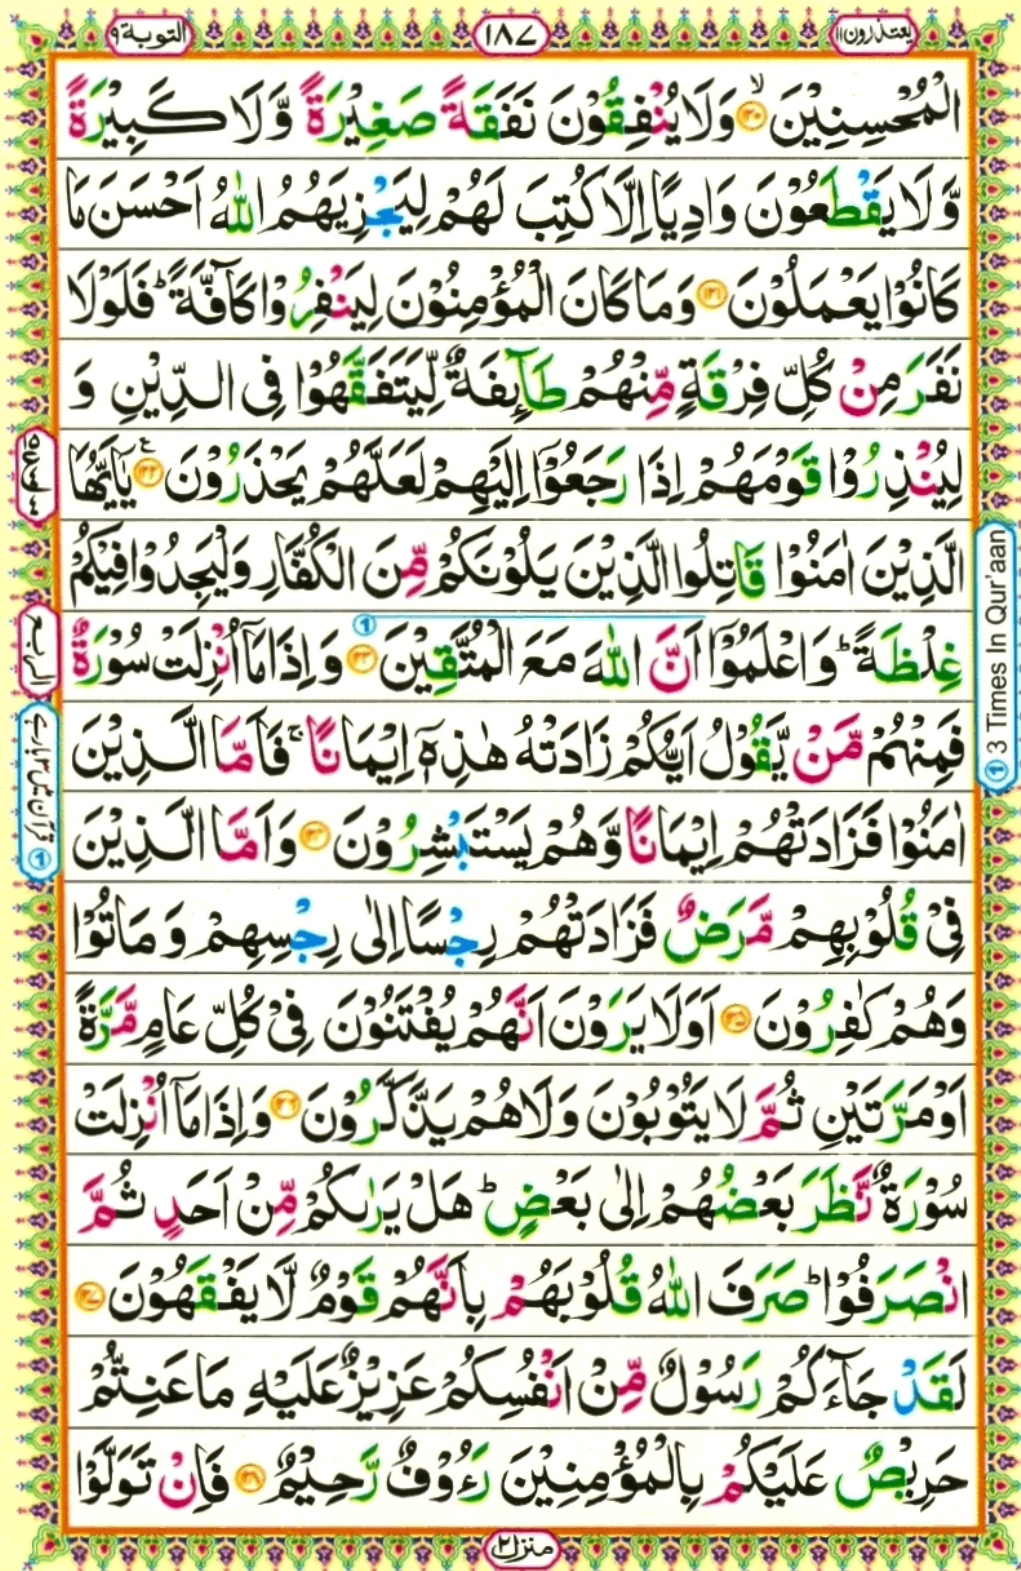 يعتذرون ١١
١٨٧
التوبة ٩
الْمُحْسِنِيْنَ ۙ﴿۱۲۰﴾ وَلَا يُنْفِقُوْنَ نَفَقَةً صَغِيْرَةً وَّلَا كَبِيْرَةً
وَّلَا يَقْطَعُوْنَ وَادِيًا اِلَّا كُتِبَ لَهُمْ لِيَجْزِيَهُمُ اللّٰهُ اَحْسَنَ مَا
كَانُوْا يَعْمَلُوْنَ ﴿۱۲۱﴾ وَمَا كَانَ الْمُؤْمِنُوْنَ لِيَنْفِرُوْا كَآفَّةً ؕ فَلَوْلَا
نَفَرَ مِنْ كُلِّ فِرْقَةٍ مِّنْهُمْ طَآىِٕفَةٌ لِّيَتَفَقَّهُوْا فِى الدِّيْنِ وَ
لِيُنْذِرُوْا قَوْمَهُمْ اِذَا رَجَعُوْۤا اِلَيْهِمْ لَعَلَّهُمْ يَحْذَرُوْنَ ﴿۱۲۲﴾ ع يٰۤاَيُّهَا
الَّذِيْنَ اٰمَنُوْا قَاتِلُوا الَّذِيْنَ يَلُوْنَكُمْ مِّنَ الْكُفَّارِ وَلْيَجِدُوْا فِيْكُمْ
غِلْظَةً ؕ وَاعْلَمُوْۤا اَنَّ اللّٰهَ مَعَ الْمُتَّقِيْنَ ﴿۱۲۳﴾ ① وَاِذَا مَاۤ اُنْزِلَتْ سُوْرَةٌ
فَمِنْهُمْ مَّنْ يَّقُوْلُ اَيُّكُمْ زَادَتْهُ هٰذِهٖۤ اِيْمَانًا ۚ فَاَمَّا الَّذِيْنَ
اٰمَنُوْا فَزَادَتْهُمْ اِيْمَانًا وَّهُمْ يَسْتَبْشِرُوْنَ ﴿۱۲۴﴾ وَاَمَّا الَّذِيْنَ
فِىْ قُلُوْبِهِمْ مَّرَضٌ فَزَادَتْهُمْ رِجْسًا اِلٰى رِجْسِهِمْ وَمَاتُوْا
وَهُمْ كٰفِرُوْنَ ﴿۱۲۵﴾ اَوَلَا يَرَوْنَ اَنَّهُمْ يُفْتَنُوْنَ فِىْ كُلِّ عَامٍ مَّرَّةً
اَوْ مَرَّتَيْنِ ثُمَّ لَا يَتُوْبُوْنَ وَلَا هُمْ يَذَّكَّرُوْنَ ﴿۱۲۶﴾ وَاِذَا مَاۤ اُنْزِلَتْ
سُوْرَةٌ نَّظَرَ بَعْضُهُمْ اِلٰى بَعْضٍ ؕ هَلْ يَرٰىكُمْ مِّنْ اَحَدٍ ثُمَّ
انْصَرَفُوْا ؕ صَرَفَ اللّٰهُ قُلُوْبَهُمْ بِاَنَّهُمْ قَوْمٌ لَّا يَفْقَهُوْنَ ﴿۱۲۷﴾
لَقَدْ جَآءَكُمْ رَسُوْلٌ مِّنْ اَنْفُسِكُمْ عَزِيْزٌ عَلَيْهِ مَا عَنِتُّمْ
حَرِيْصٌ عَلَيْكُمْ بِالْمُؤْمِنِيْنَ رَءُوْفٌ رَّحِيْمٌ ﴿۱۲۸﴾ فَاِنْ تَوَلَّوْا
① 3 Times In Qur'aan
منزل ٢